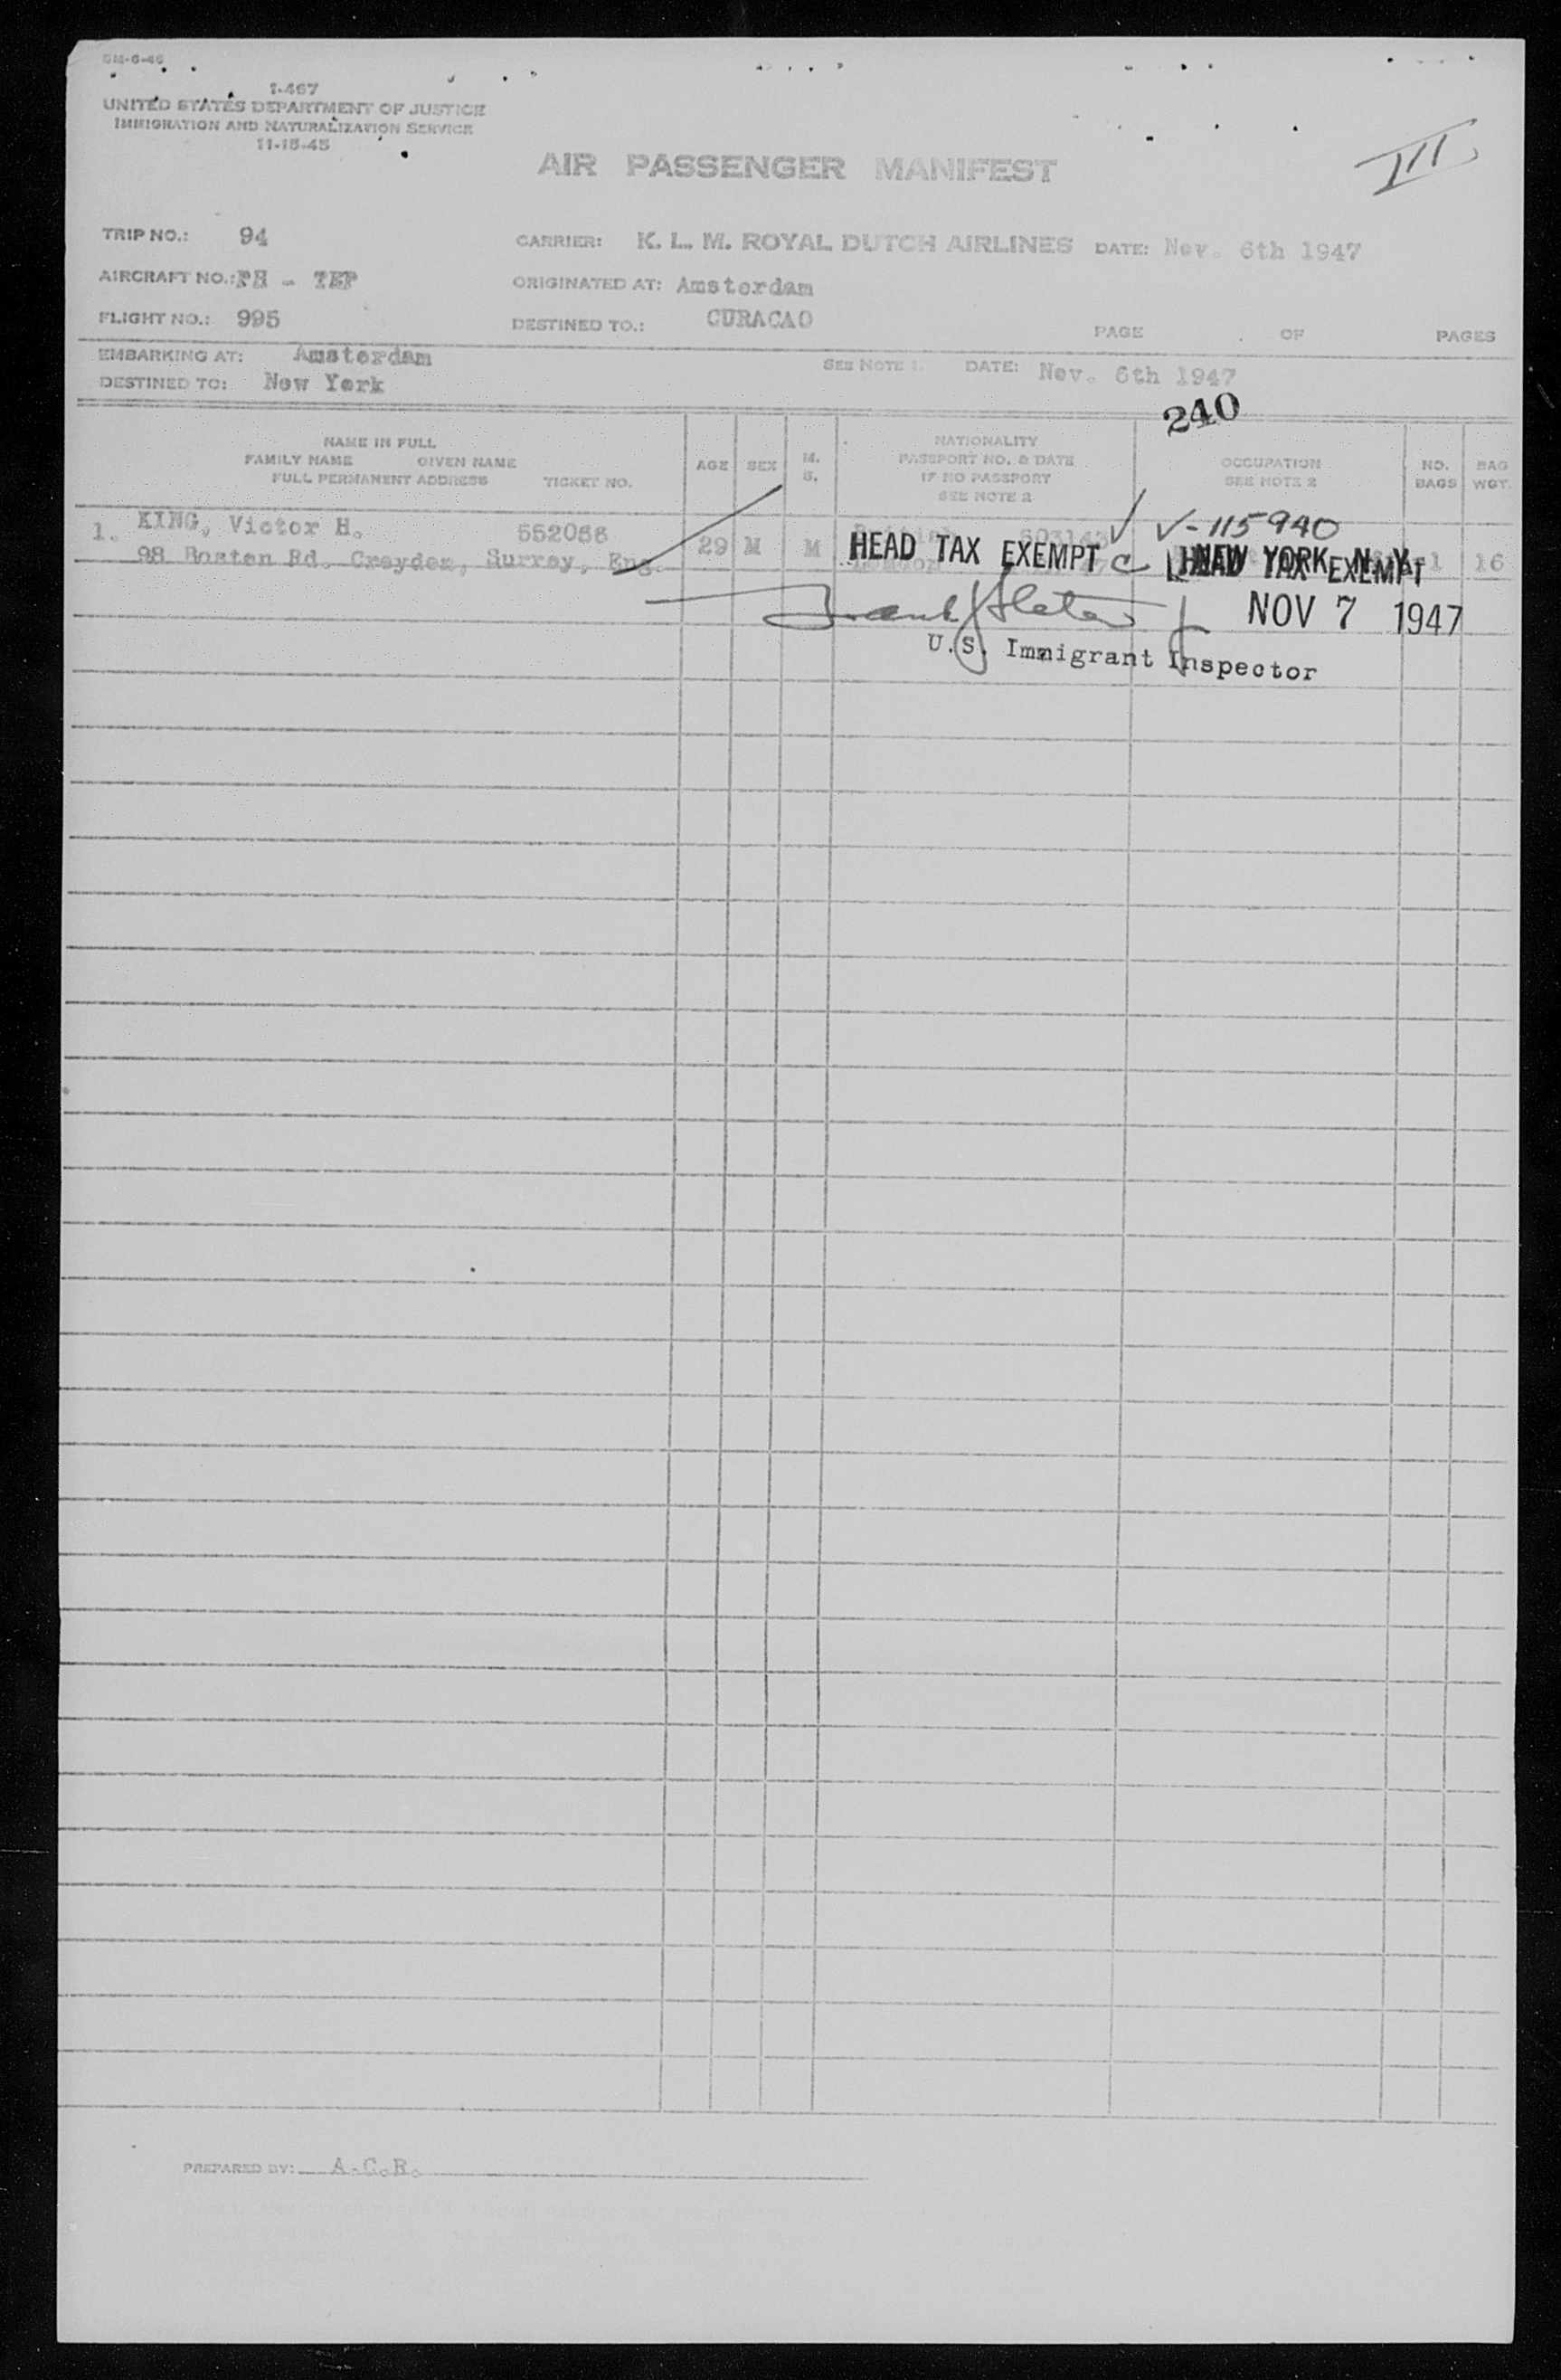 5M-6-46
I-467
UNITED STATES DEPARTMENT OF JUSTICE
IMMIGRATION AND NATURALIZATION SERVICE
11-15-45
III
AIR PASSENGER MANIFEST
TRIP NO.: 94 CARRIER: K. L. M. ROYAL DUTCH AIRLINES DATE: Nov. 6th 1947
AIRCRAFT NO.: PH - TEP ORIGINATED AT: Amsterdam
FLIGHT NO.: 995 DESTINED TO.: CURACAO PAGE OF PAGES
EMBARKING AT: Amsterdam SEE NOTE 1. DATE: Nov. 6th 1947
DESTINED TO: New York
240
NAME IN FULL
FAMILY NAME GIVEN NAME
FULL PERMANENT ADDRESS TICKET NO.
AGE
SEX
M.
S.
NATIONALITY
PASSPORT NO. & DATE
IF NO PASSPORT
SEE NOTE 2
OCCUPATION
SEE NOTE 2
NO.
BAGS
BAG
WGT.
1. KING, Victor H. 552068 29 M M British V-115940
98 Boston Rd. Croydon, Surrey, Eng. London 1 16
HEAD TAX EXEMPT
NEW YORK, N.Y.
HEAD TAX EXEMPT
NOV 7 1947
U.S. Immigrant Inspector
PREPARED BY: A.C.R.